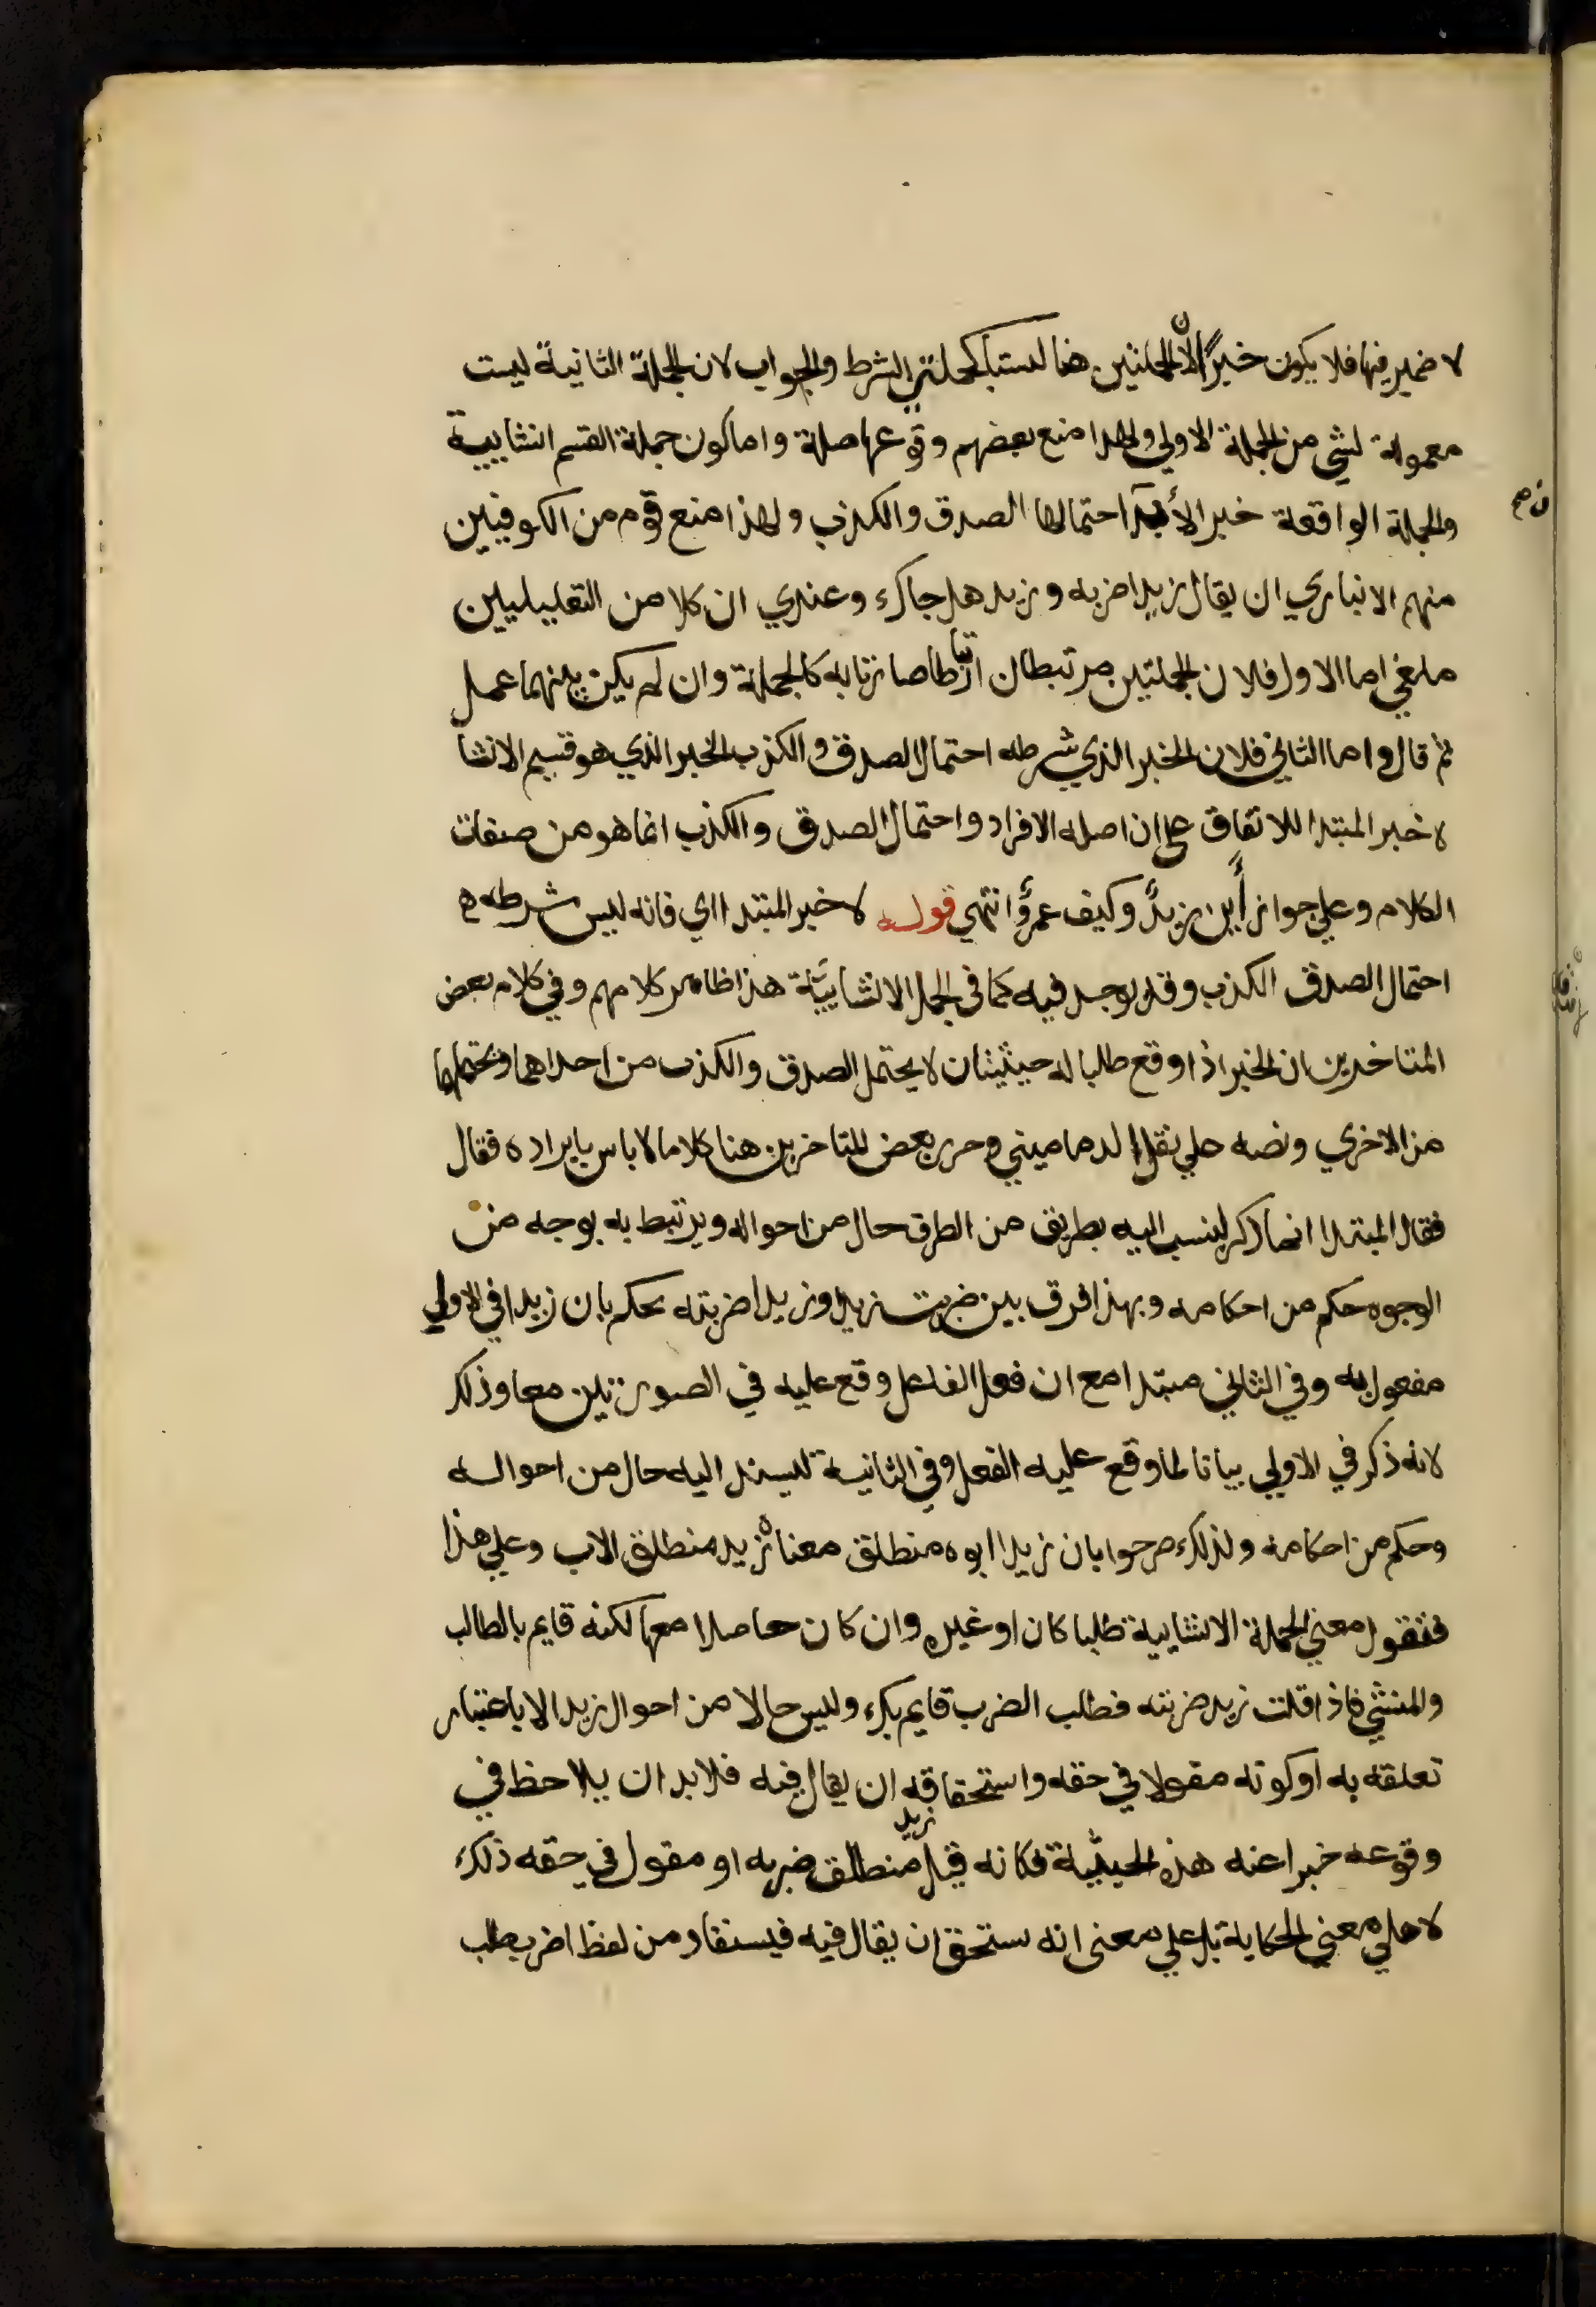 لا ضمير فيها فلا يكون خبرًا لانّ الجملتين هنا ليستا كجملتي الشرط والجواب لان الجملة الثانية ليست
معمولة لشي من الجملة الاولي ولهذا منع بعضهم وقوعها صلة واما كون جملة القسم انشابية
والجملة الواقعة خبرا لا بد احتمالها الصدق والكذب ولهذا منع قوم من الكوفيين
منهم الانباري ان يقال زيد اضربه وزيد هل جاك وعندي ان كلا من التعليلين
ملغي اما الاول فلان الجملتين مرتبطان ارتباطا صارتا به كالجملة وان لم يكن بينهما عمل
ثم قال واما الثاني فلان الخبر الذي شرطه احتمال الصدق والكذب الخبر الذي هو قسيم الانشا
لا خبر المبتدا للاتفاق علي ان اصله الافراد واحتمال الصدق والكذب انما هو من صفات
الكلام وعلي جواز أين زيدٌ وكيف عمرٌو انتهي قوله لا خبر المبتدا اي فانه ليس شرطه
احتمال الصدق الكذب وقد يوجد فيه كما في الجمل الانشاييّة هذا ظاهر كلامهم وفي كلام بعض
المتاخرين ان الخبر اذا وقع طلبا له حيثيتان لا يحتمل الصدق والكذب من احداهما ويحتملهما
من الاخري ونصه علي نقل الدماميني وحرر بعض المتاخرين هنا كلاما لا باس بايراده فقال
فقال المبتدا انما ذكر لينسب اليه بطريق من الطرق حال من احواله ويرتبط به بوجه من
الوجوه حكم من احكامه وبهذا فرق بين ضربت زيدا وزيدا ضربته بحكم بان زيدا في الاولي
مفعول به وفي الثاني مبتدا مع ان فعل الفاعل وقع عليه في الصورتين معا وذلك
لانه ذكر في الاولي بيانا لما وقع عليه الفعل وفي الثانية ليسند اليه حال من احواله
وحكم من احكامه ولذلك صرحوا بان زيدا ابوه منطلق معناه زيد منطلق الاب وعلي هذا
فنقول معني الجملة الانشايية طلبا كان او غيره وان كان حاصلا معها لكنه قايم بالطالب
والمنشي فاذا قلت زيد ضربته فطلب الضرب قايم بك وليس حالا من احوال زيد الا باعتبار
تعلقه به او كونه مقولا في حقه واستحقاقه ان يقال فيه فلا بد ان يلاحظ في
وقوعه خبرا عنه هذه الحيثية فكانه قيل زيد منطلق ضربه او مقول في حقه ذلك
لا علي معني الحكاية بل علي معنى انه يستحق ان يقال فيه فيستفاد من لفظ اضرب طلب